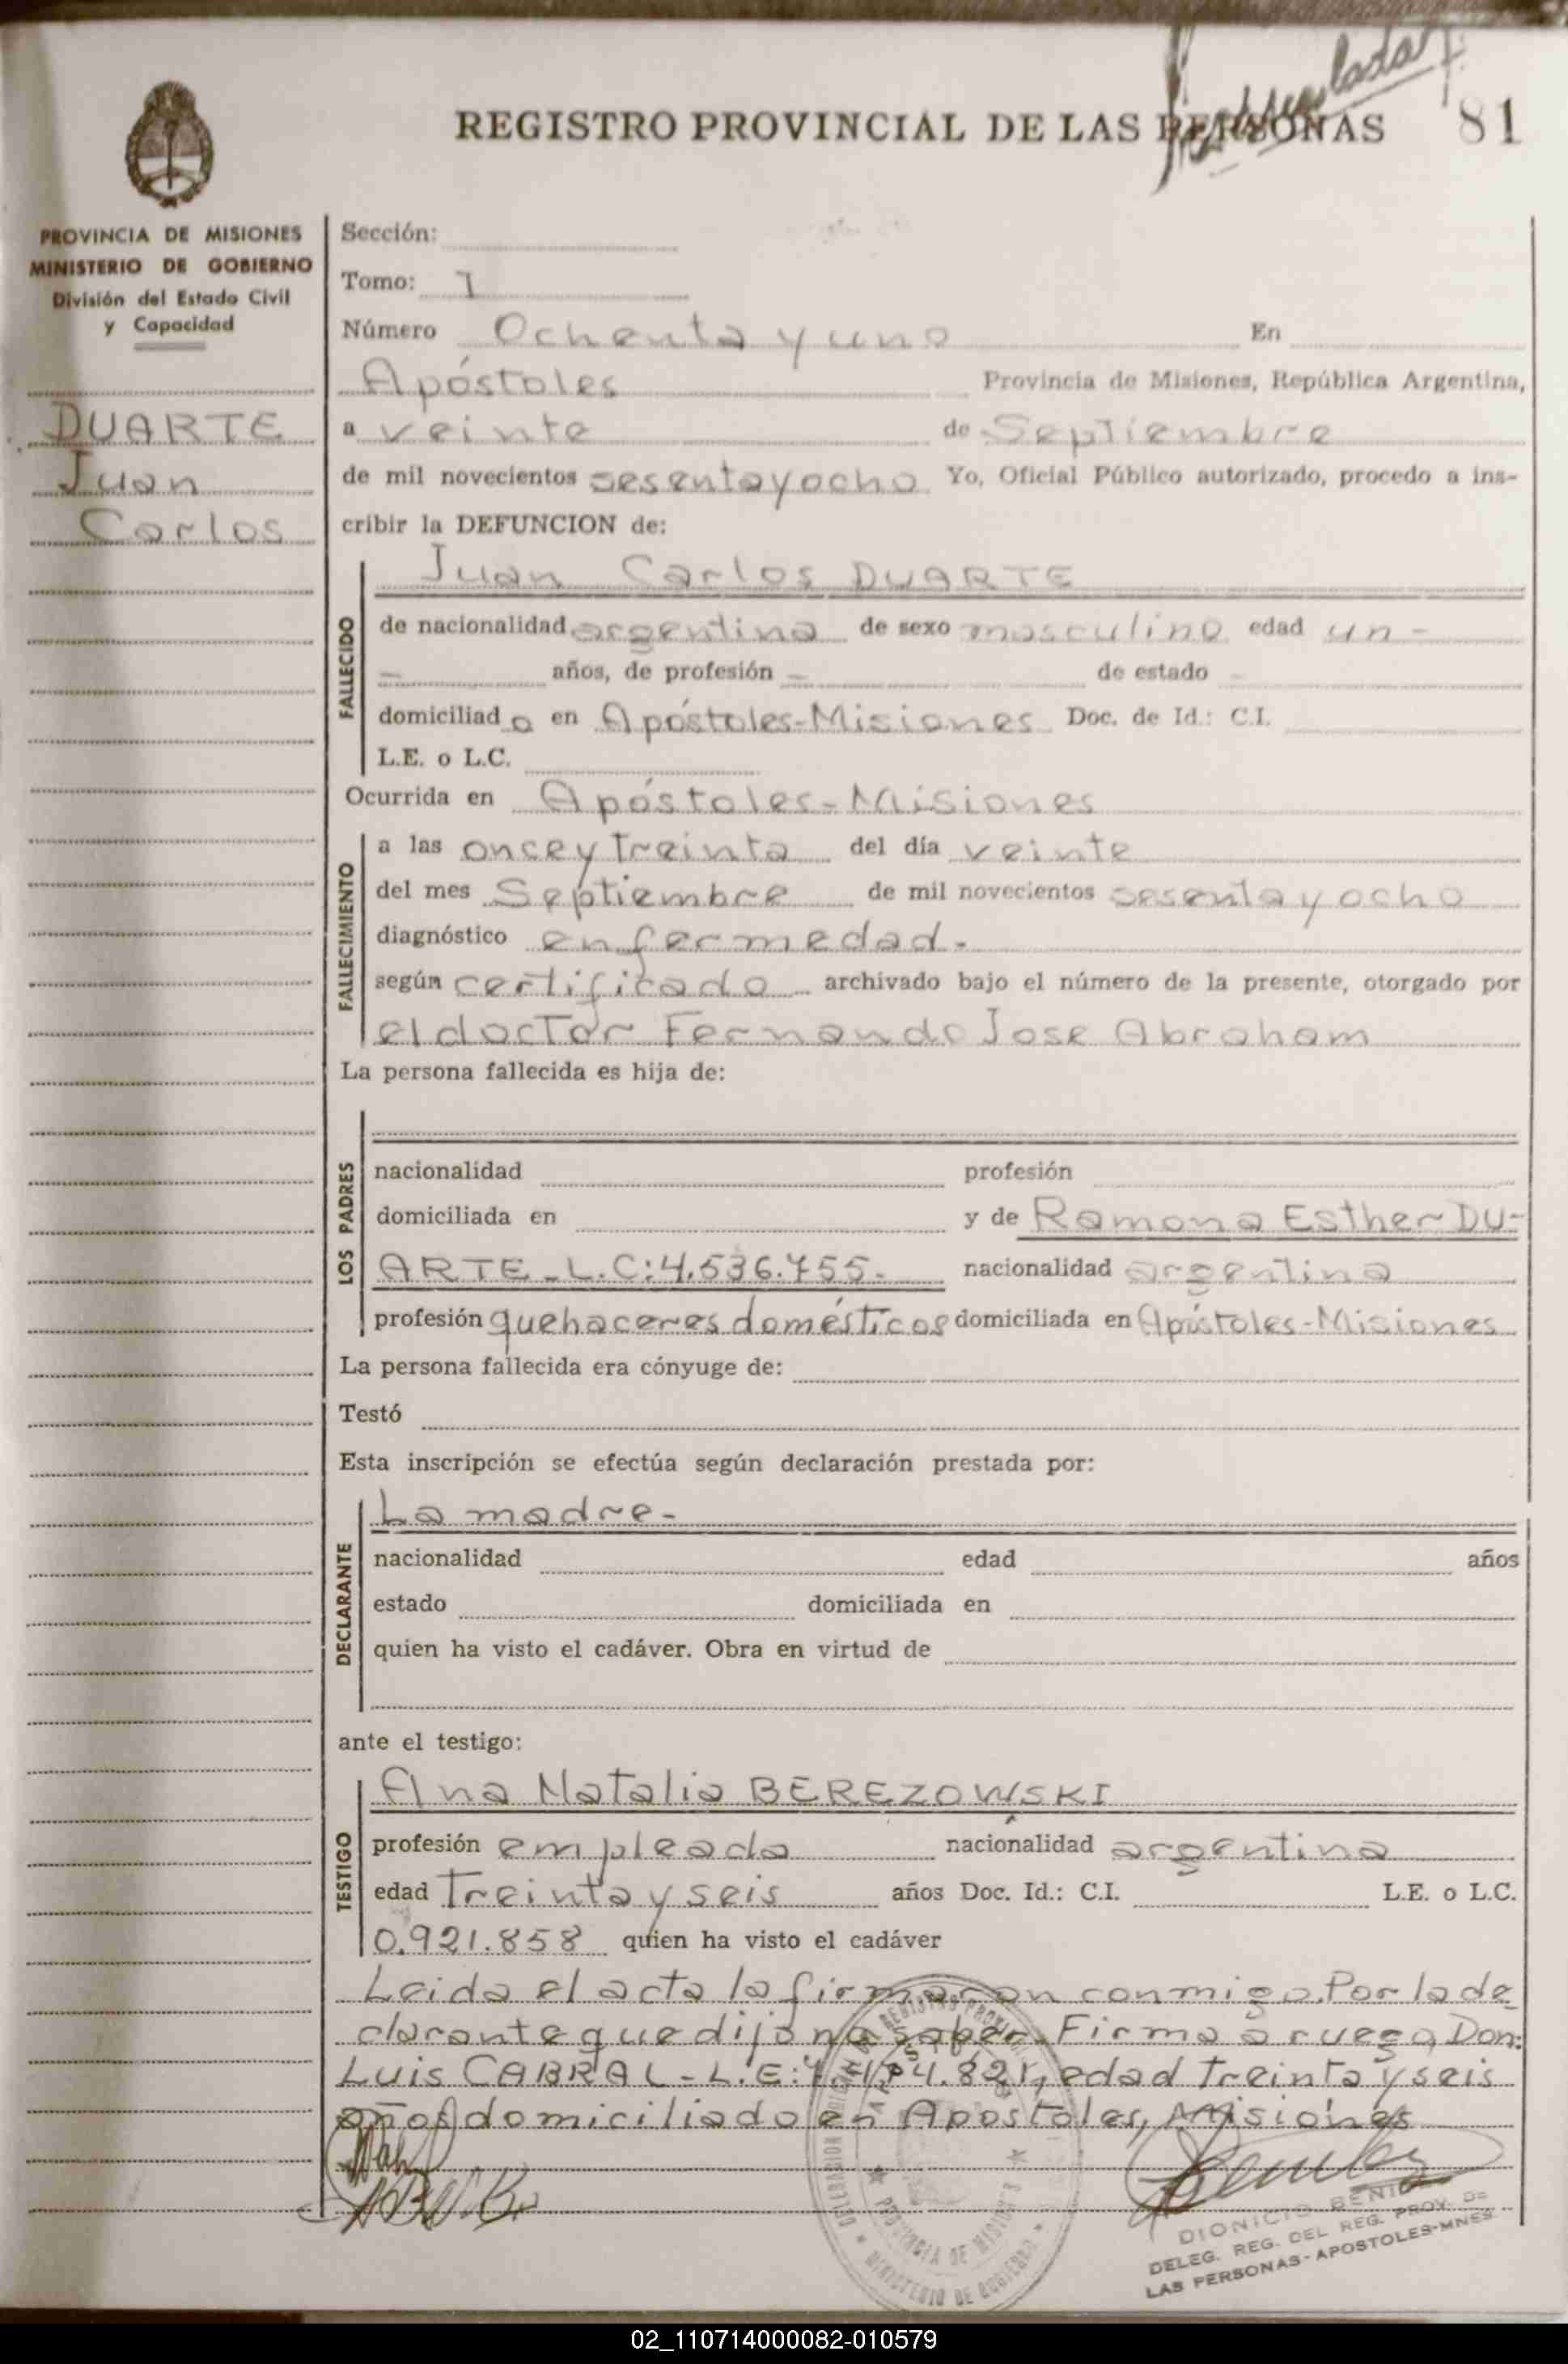 REGISTRO PROVINCIAL DE LAS PERSONAS 81
PROVINCIA DE MISIONES
MINISTERIO DE GOBIERNO
División del Estado Civil
y Capacidad
DUARTE
Juan
Carlos
Sección:
Tomo: 1
Número Ochenta y uno En
Apóstoles Provincia de Misiones, República Argentina,
a veinte de Septiembre
de mil novecientos sesenta y ocho Yo, Oficial Público autorizado, procedo a ins-
cribir la DEFUNCION de:
FALLECIDO
Juan Carlos DUARTE
de nacionalidad argentina de sexo masculino edad un -
- años, de profesión - de estado -
domiciliad o en Apóstoles-Misiones Doc. de Id.: C.I.
L.E. o L.C.
Ocurrida en Apóstoles-Misiones
FALLECIMIENTO
a las once y treinta del día veinte
del mes Septiembre de mil novecientos sesenta y ocho
diagnóstico enfermedad.-
según certificado archivado bajo el número de la presente, otorgado por
el doctor Fernando Jose Abraham
La persona fallecida es hija de:
LOS PADRES
nacionalidad profesión
domiciliada en y de Ramona Esther DU-
ARTE - L.C: 4.536.755.- nacionalidad argentina
profesión quehaceres domésticos domiciliada en Apóstoles-Misiones
La persona fallecida era cónyuge de:
Testó
Esta inscripción se efectúa según declaración prestada por:
DECLARANTE
La madre-
nacionalidad edad años
estado domiciliada en
quien ha visto el cadáver. Obra en virtud de
ante el testigo:
TESTIGO
Ana Natalia BEREZOWSKI
profesión empleada nacionalidad argentina
edad Treinta y seis años Doc. Id.: C.I. L.E. o L.C.
0.921.858 quien ha visto el cadáver
Leida el acta la firmaron conmigo. Por la de
clarante que dijo no saber. Firma a ruego, Don:
Luis CABRAL - L.E: 4.821, edad Treinta y seis
años domiciliado en Apostoles, Misiones
PROVINCIA DE MISIONES
MINISTERIO DE GOBIERNO
DIONICIO
DELEG. REG. DEL REG. PROV. DE
LAS PERSONAS-APOSTOLES-MNES.
02_110714000082-010579